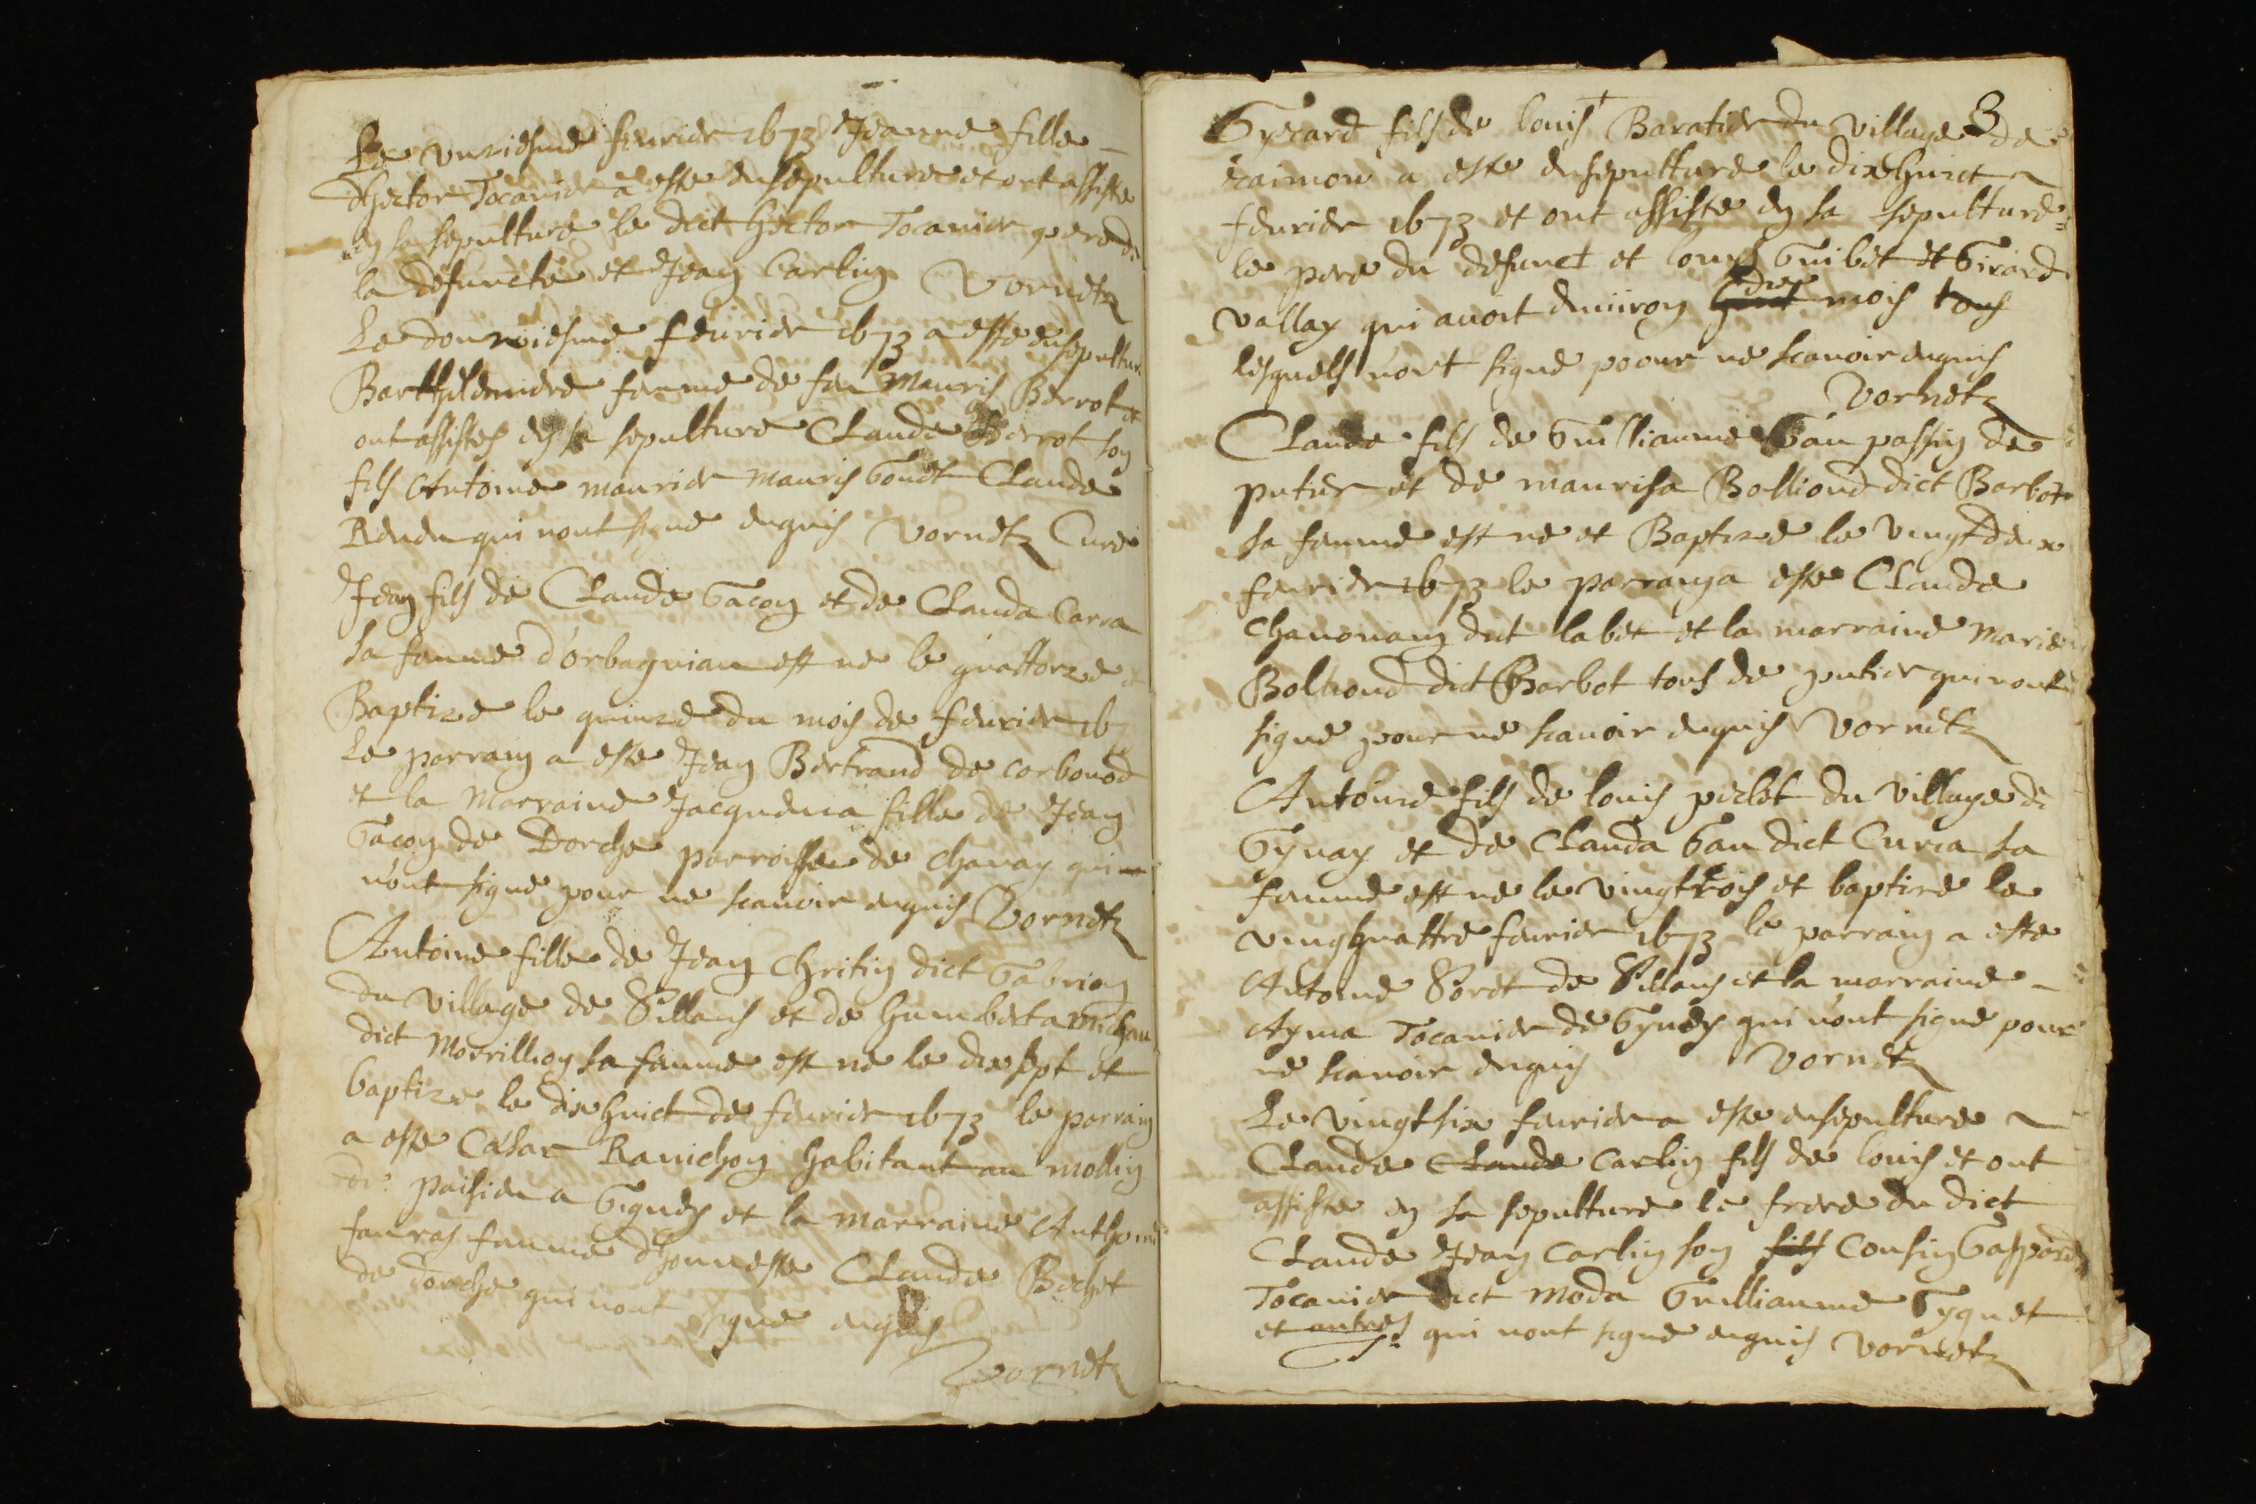 Le unziesme feurier 1673 Jeanne fille
d'hector Tocanier a este ensepulturee et ont assiste
en sa sepulture le dict hector Tocanier pere de
la defuncte et Jean Carlin Vornetz
Le douziesme feurier 1673 a este ensepultur
Barthelemiere femme de feu Mauris Berrot et
ont assistes en sa sepulture Claude Berrot son
fils Antoine maurier Mauris Goudt Claude
qui nont signe enquis Vornetz Cure
Jean fils de Claude Gacon et de Clauda Carra
sa femme d'orbagnian est ne le quattorze et
Baptize le quinze du mois de feurier 167
Le parrain a este Jean Bertrand de corbonod
et la Marraine Jacquema fille de Jean
Gacon de Dorche parroisse de chanay qui
n'ont signe pour ne scauoir enquis Vornetz
Antoine fille de Jean Chritin dict Gabrion
du village de Sillans et de humberta Michau
dict Morrillion sa femme est ne le dixsept et
baptize le dixhuict de feurier 1673 le parrain
a este Cæsar Ranichon habitant au mollin
de a Gignes et la marraine Anthoine
fauras femme d'honneste Claude Bochet
de dorche qui nont signe enquis
Vornetz
3
Gyrard fils de louis Baratier du village de
a este ensepulture le dixhuict
feurier 1673 et ont assiste en sa sepulture
le pere du defunct et louys Guibet et Girard
vallay qui auoit enuiron huict dix mois tous
lesquels n'ont signe poour ne scauoir enquis
Vornetz
Claude fils de Guilliaume Gau passin de
putier et de maurisa Bolliond dict Barbot
sa femme est ne et Baptize le vingtdeux
feurier 1673 le parrain a este Claude
chauonain dict labet et la marraine Marie
Bolliond dict Barbot tous de putier qui nont
signe pour ne scauoir enquis Vornetz
Antoine fils de louis piclet du village de
Gynay et de Clauda Gau dict Curra sa
femme est ne le vingttrois et baptize le
vingtquattre feurier 1673 le parrain a este
Antoine Soret de Sillans et la marraine
Ayma Tocanier de Gynes qui n'ont signe pour
ne scauoir enquis Vornetz
Le vingtsix feurier a este ensepulture
Claude Claude Carlin fils de louis et ont
assiste en sa sepulture le frere du dict
Claude Jean Carlin son fils Cousin Gaspard
Tocanier dict Moda Guilliaume Gyguet
et autres qui nont signe enquis Vornetz